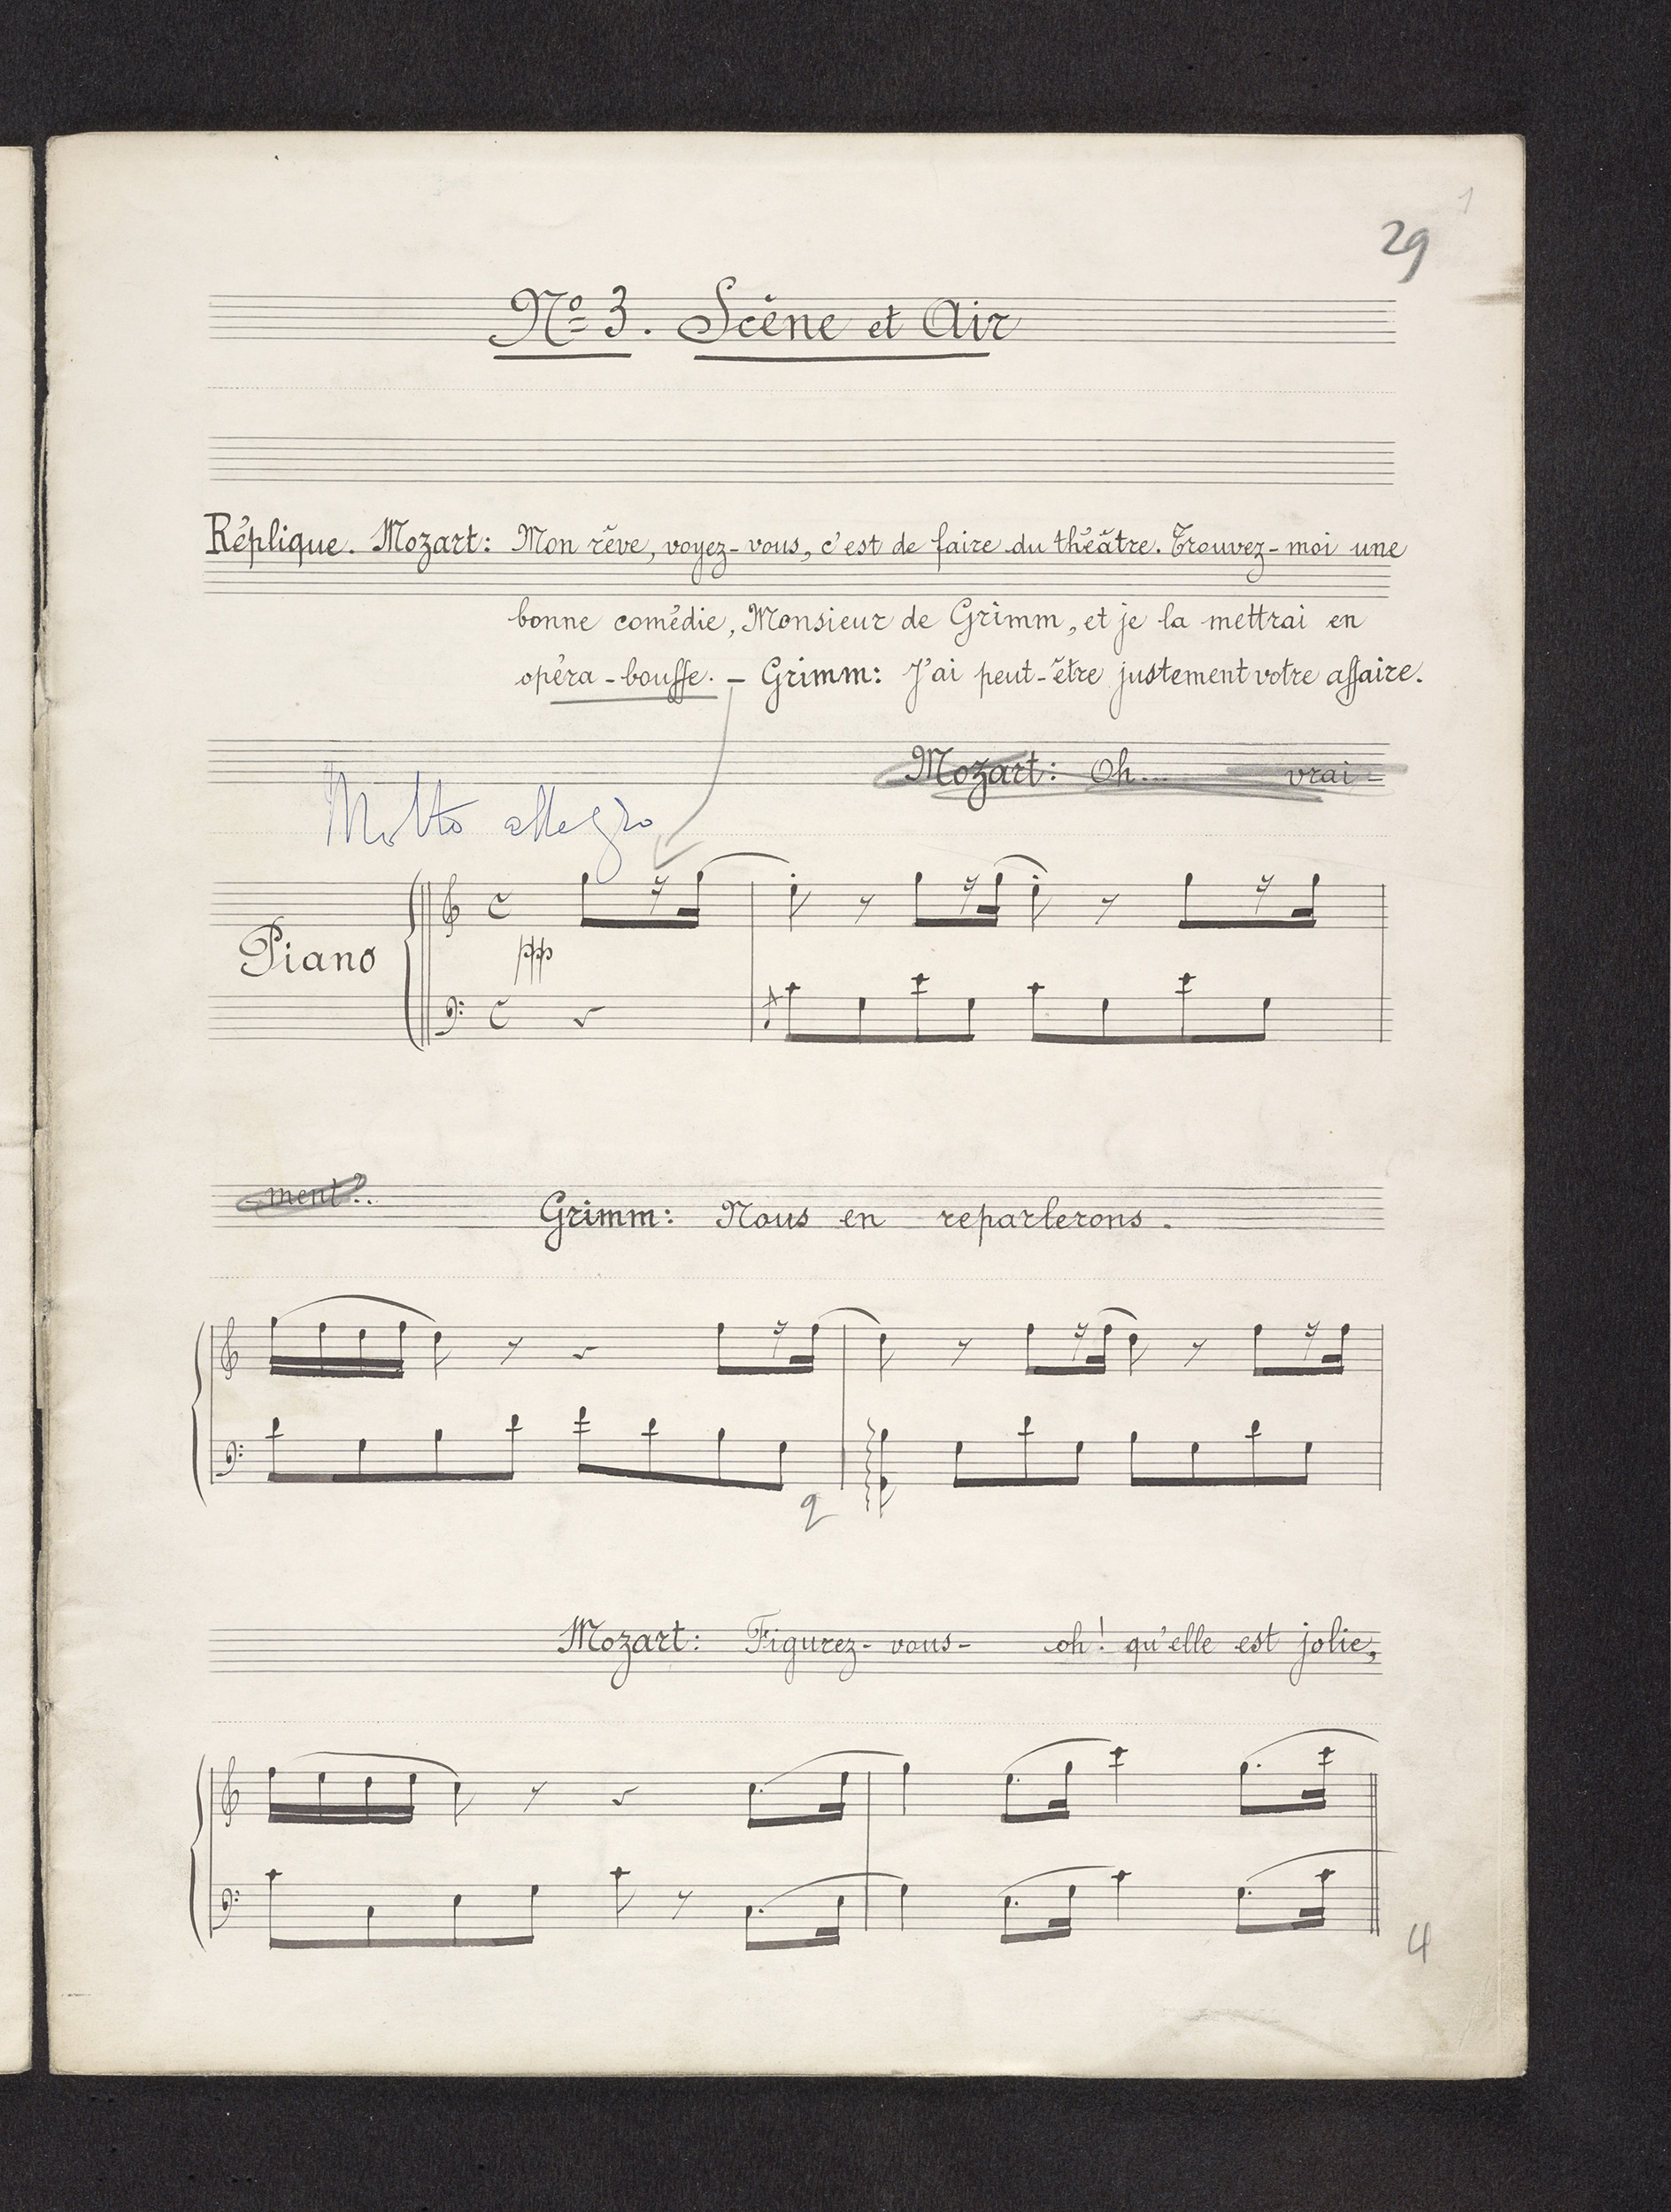 1
29
Nº 3. Scène et Air
Réplique. Mozart: Mon rêve, voyez-vous, c'est de faire du théâtre. Trouvez-moi une
bonne comédie, Monsieur de Grimm, et je la mettrai en
opéra-bouffe. — Grimm: J'ai peut-être justement votre affaire.
Mozart: Oh... vrai-
Molto allegro
Piano
ppp
-ment?..
Grimm: Nous en reparlerons.
Mozart: Figurez-vous- oh! qu'elle est jolie,
4